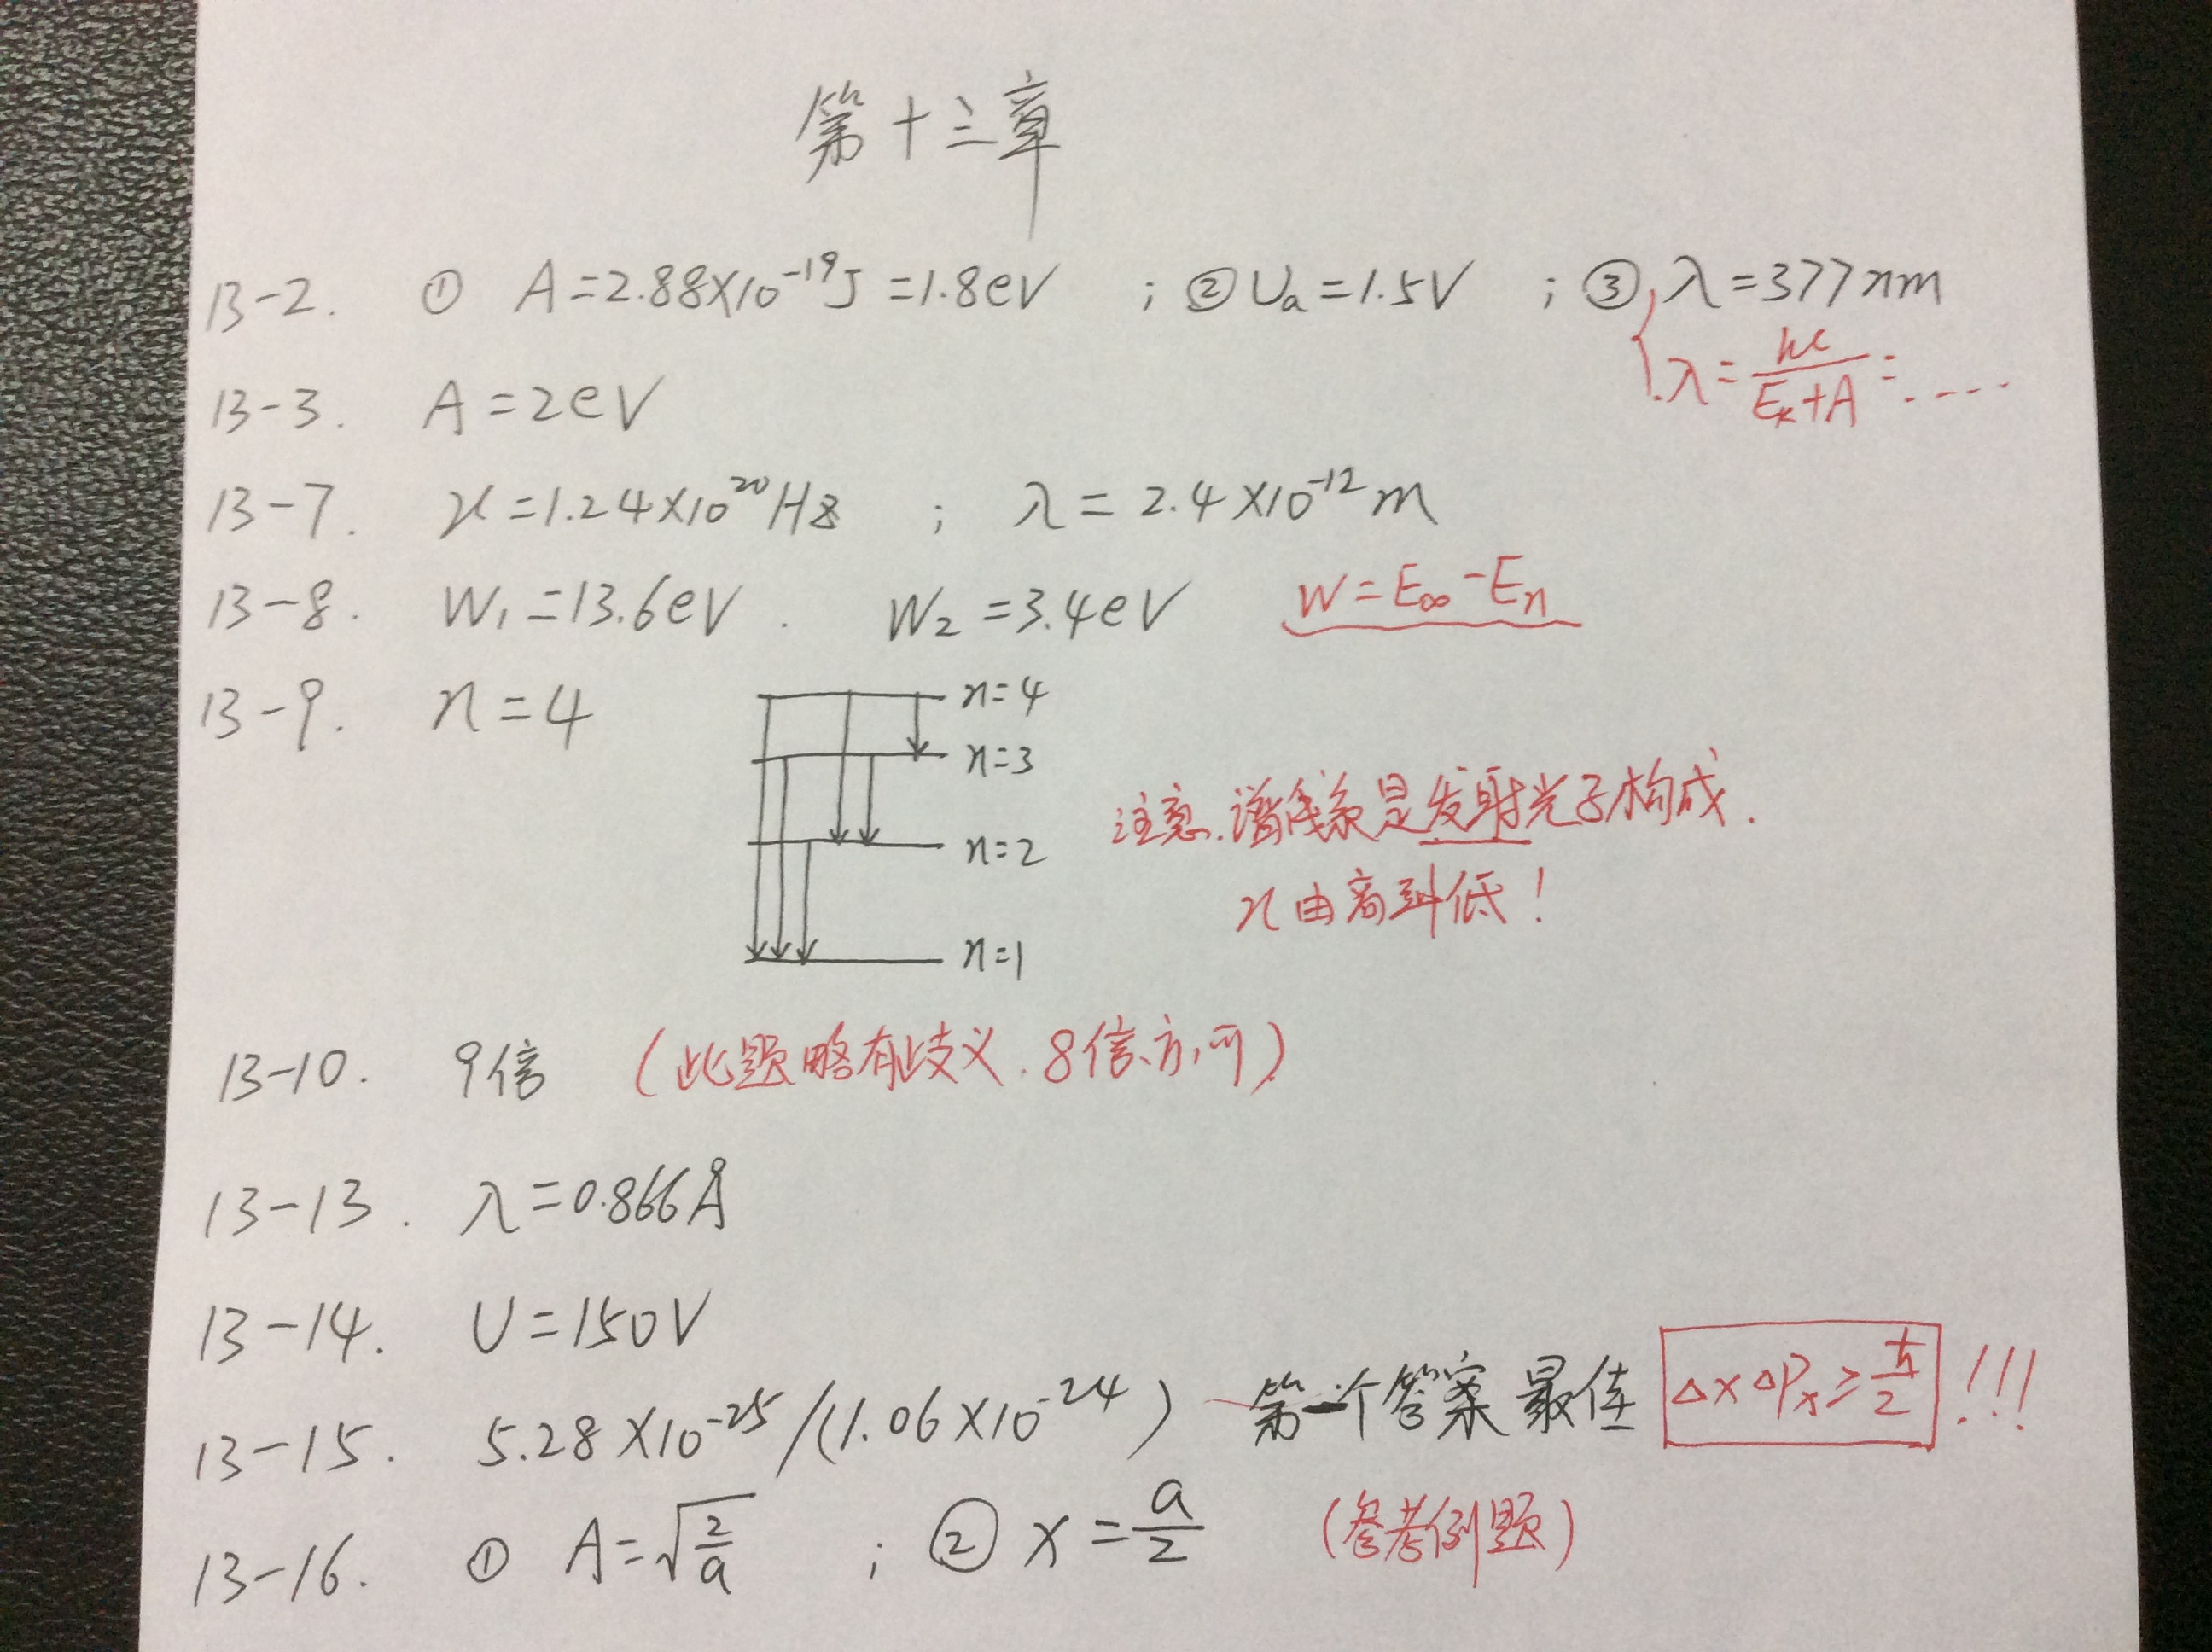 第十三章
13-2. ① A=2.88×10⁻¹⁹J=1.8eV ; ② Uₐ=1.5V ; ③ λ=377nm
λ=hc/(Eₖ+A)=....
13-3. A=2eV
13-7. ν=1.24×10²⁰Hz ; λ=2.4×10⁻¹²m
13-8. W₁=13.6eV. W₂=3.4eV W=E∞-Eₙ
13-9. n=4
n=4
n=3
n=2
n=1
注意.谱线系是发射光子构成.
n由高到低!
13-10. 9倍 (此题略有歧义.8倍亦可)
13-13. λ=0.866Å
13-14. U=150V
13-15. 5.28×10⁻²⁵/(1.06×10⁻²⁴) 第一个答案最佳 ΔxΔPₓ≥ħ/2 !!!
13-16. ① A=√(2/a) ; ② x=a/2 (参考例题)